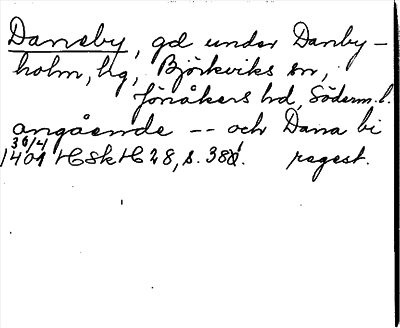 Dansby, gd under Danby-
holm, hg, Björkviks sn,
Jönåkers hd, Söderm.l.
angående -- och Dana bi
30/4
1401 HSkH 28, s. 38 regest.